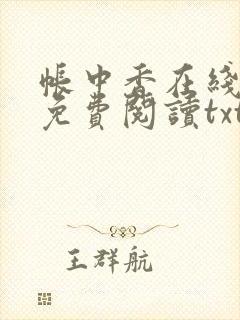 帳中香在綫
免費閱讀txt
王群航